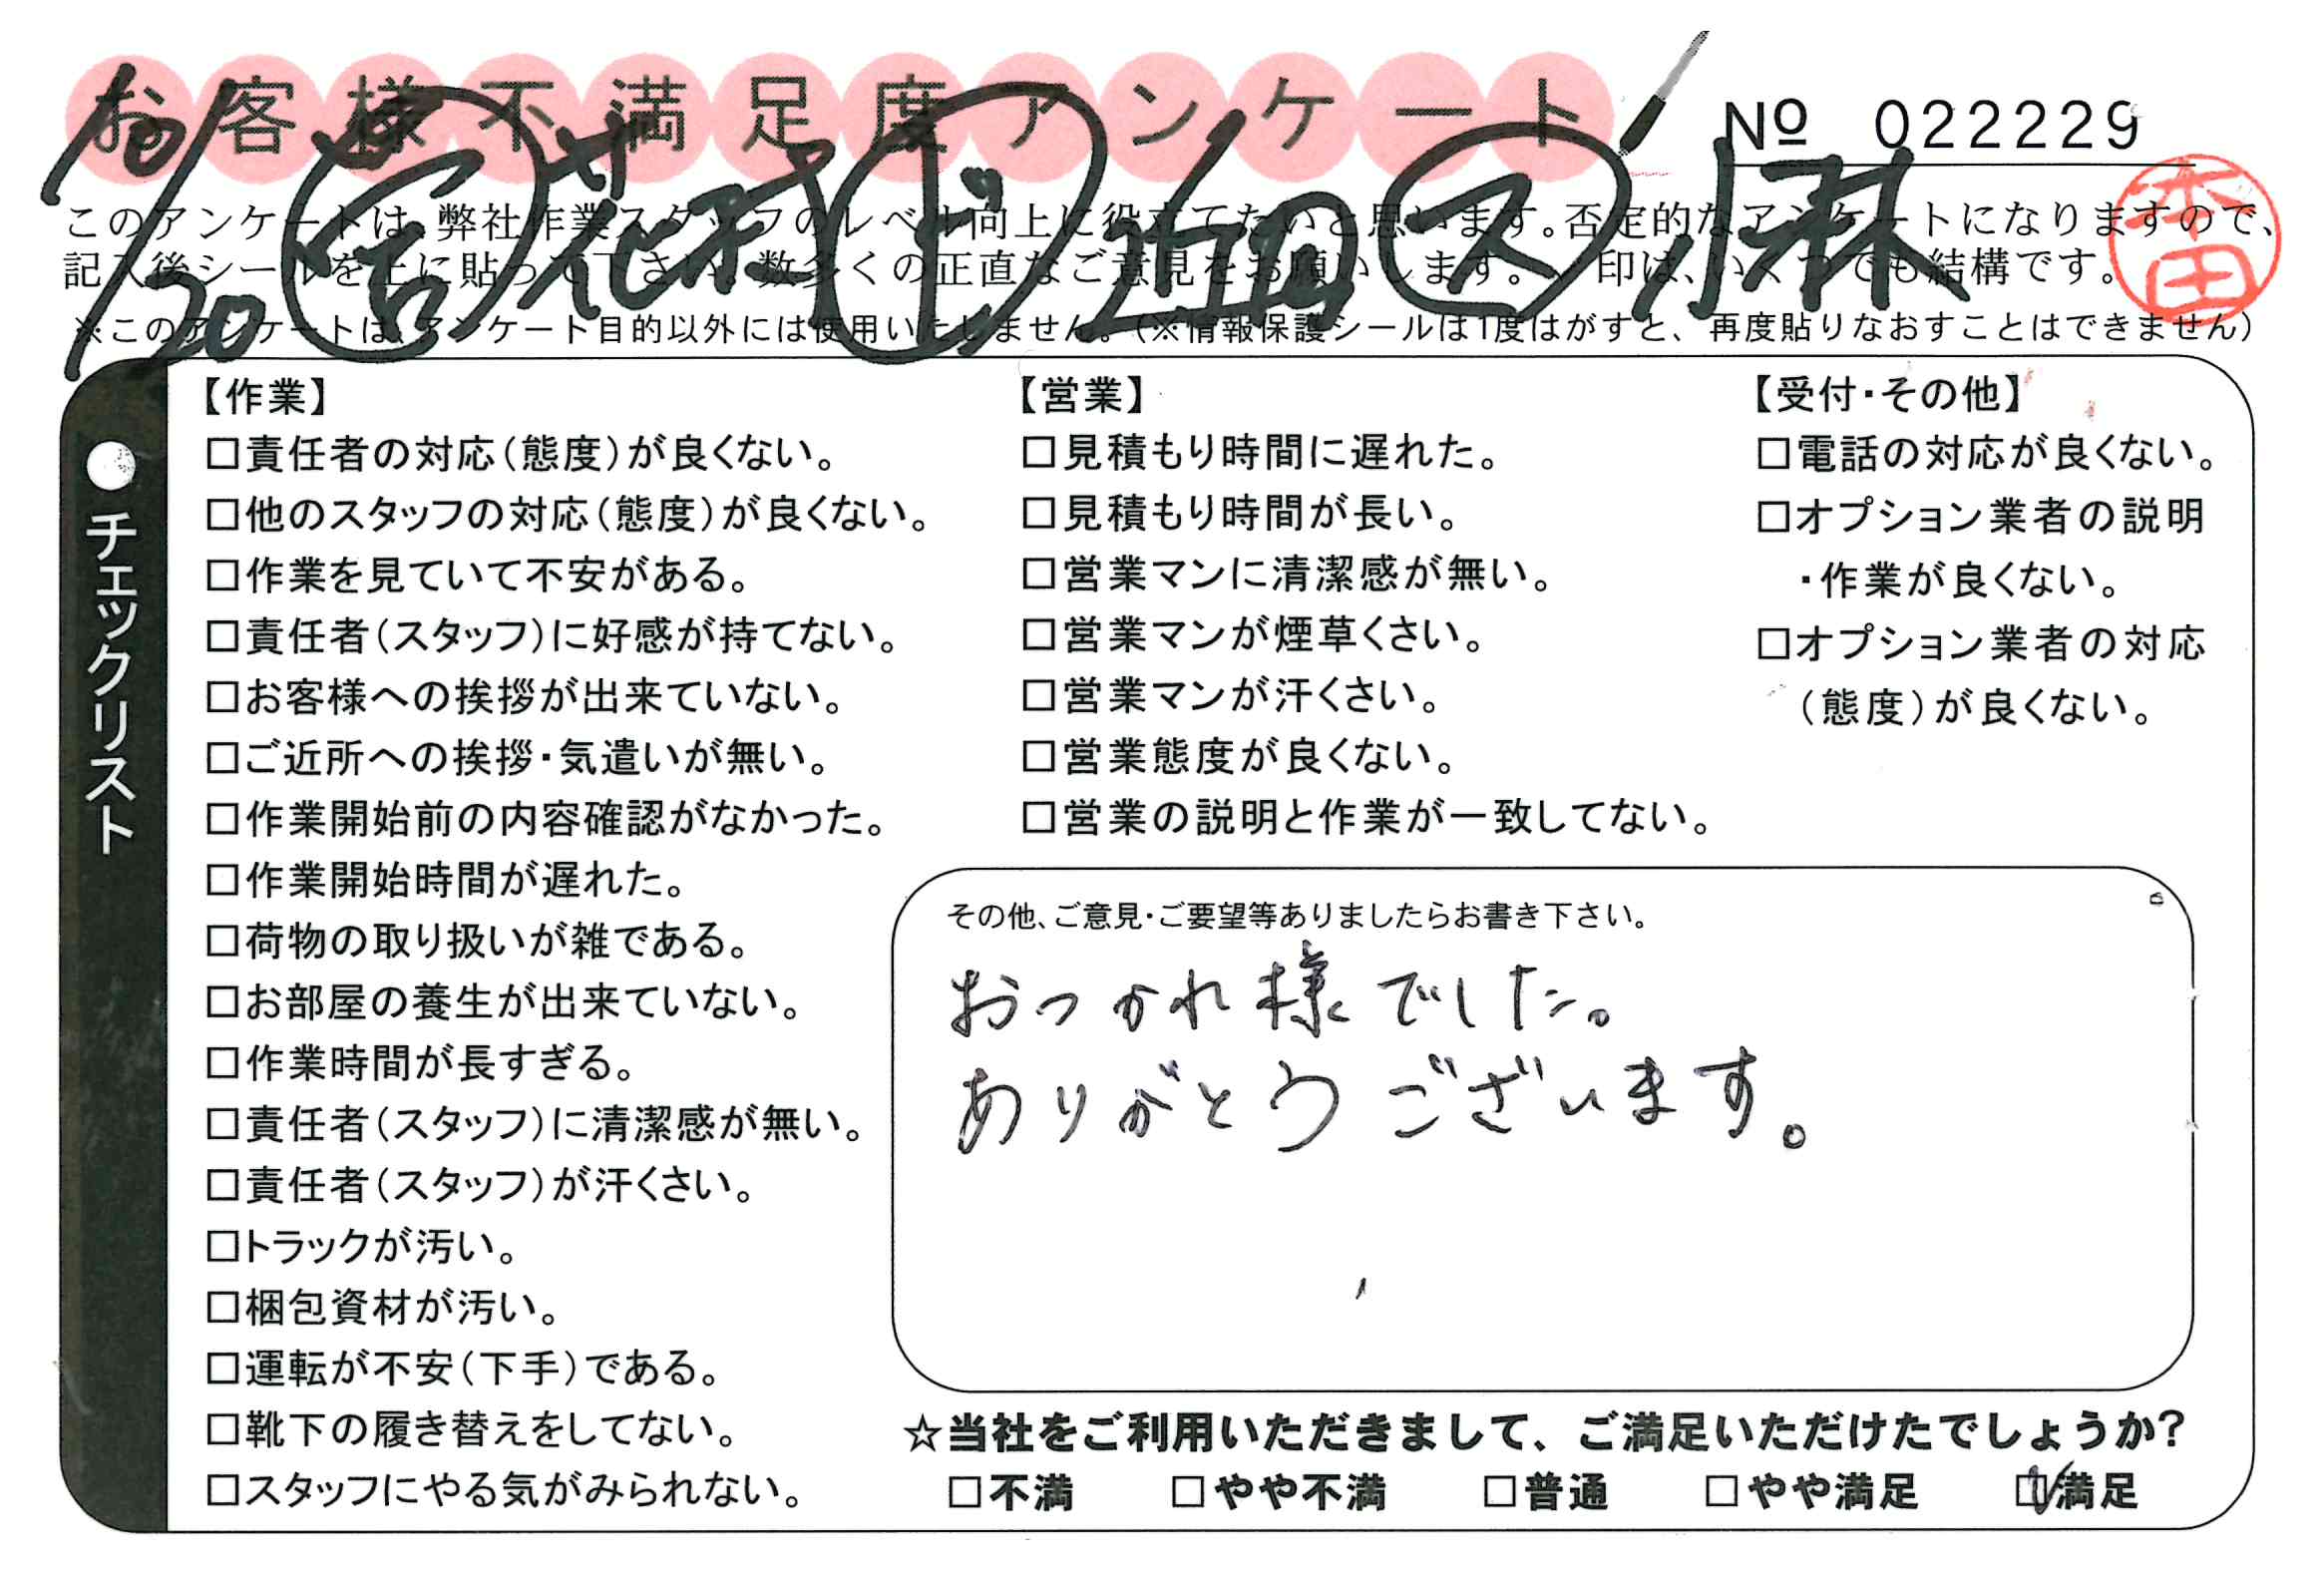 お客様不満足度アンケート
№ 022229
10/20 営 花村 ド 上岡 ス 小林
本田
このアンケートは、弊社作業スタッフのレベル向上に役立てたいと思います。否定的なアンケートになりますので、
記入後シールを上に貼って下さい。数多くの正直なご意見をお願いします。✓印は、いくつでも結構です。
※このアンケートは、アンケート目的以外には使用いたしません。（※情報保護シールは1度はがすと、再度貼りなおすことはできません）
●チェックリスト
【作業】
□責任者の対応（態度）が良くない。
□他のスタッフの対応（態度）が良くない。
□作業を見ていて不安がある。
□責任者（スタッフ）に好感が持てない。
□お客様への挨拶が出来ていない。
□ご近所への挨拶・気遣いが無い。
□作業開始前の内容確認がなかった。
□作業開始時間が遅れた。
□荷物の取り扱いが雑である。
□お部屋の養生が出来ていない。
□作業時間が長すぎる。
□責任者（スタッフ）に清潔感が無い。
□責任者（スタッフ）が汗くさい。
□トラックが汚い。
□梱包資材が汚い。
□運転が不安（下手）である。
□靴下の履き替えをしてない。
□スタッフにやる気がみられない。
【営業】
□見積もり時間に遅れた。
□見積もり時間が長い。
□営業マンに清潔感が無い。
□営業マンが煙草くさい。
□営業マンが汗くさい。
□営業態度が良くない。
□営業の説明と作業が一致してない。
【受付・その他】
□電話の対応が良くない。
□オプション業者の説明
・作業が良くない。
□オプション業者の対応
（態度）が良くない。
その他、ご意見・ご要望等ありましたらお書き下さい。
おつかれ様でした。
ありがとうございます。
☆当社をご利用いただきまして、ご満足いただけたでしょうか？
□不満 □やや不満 □普通 □やや満足 ☑満足